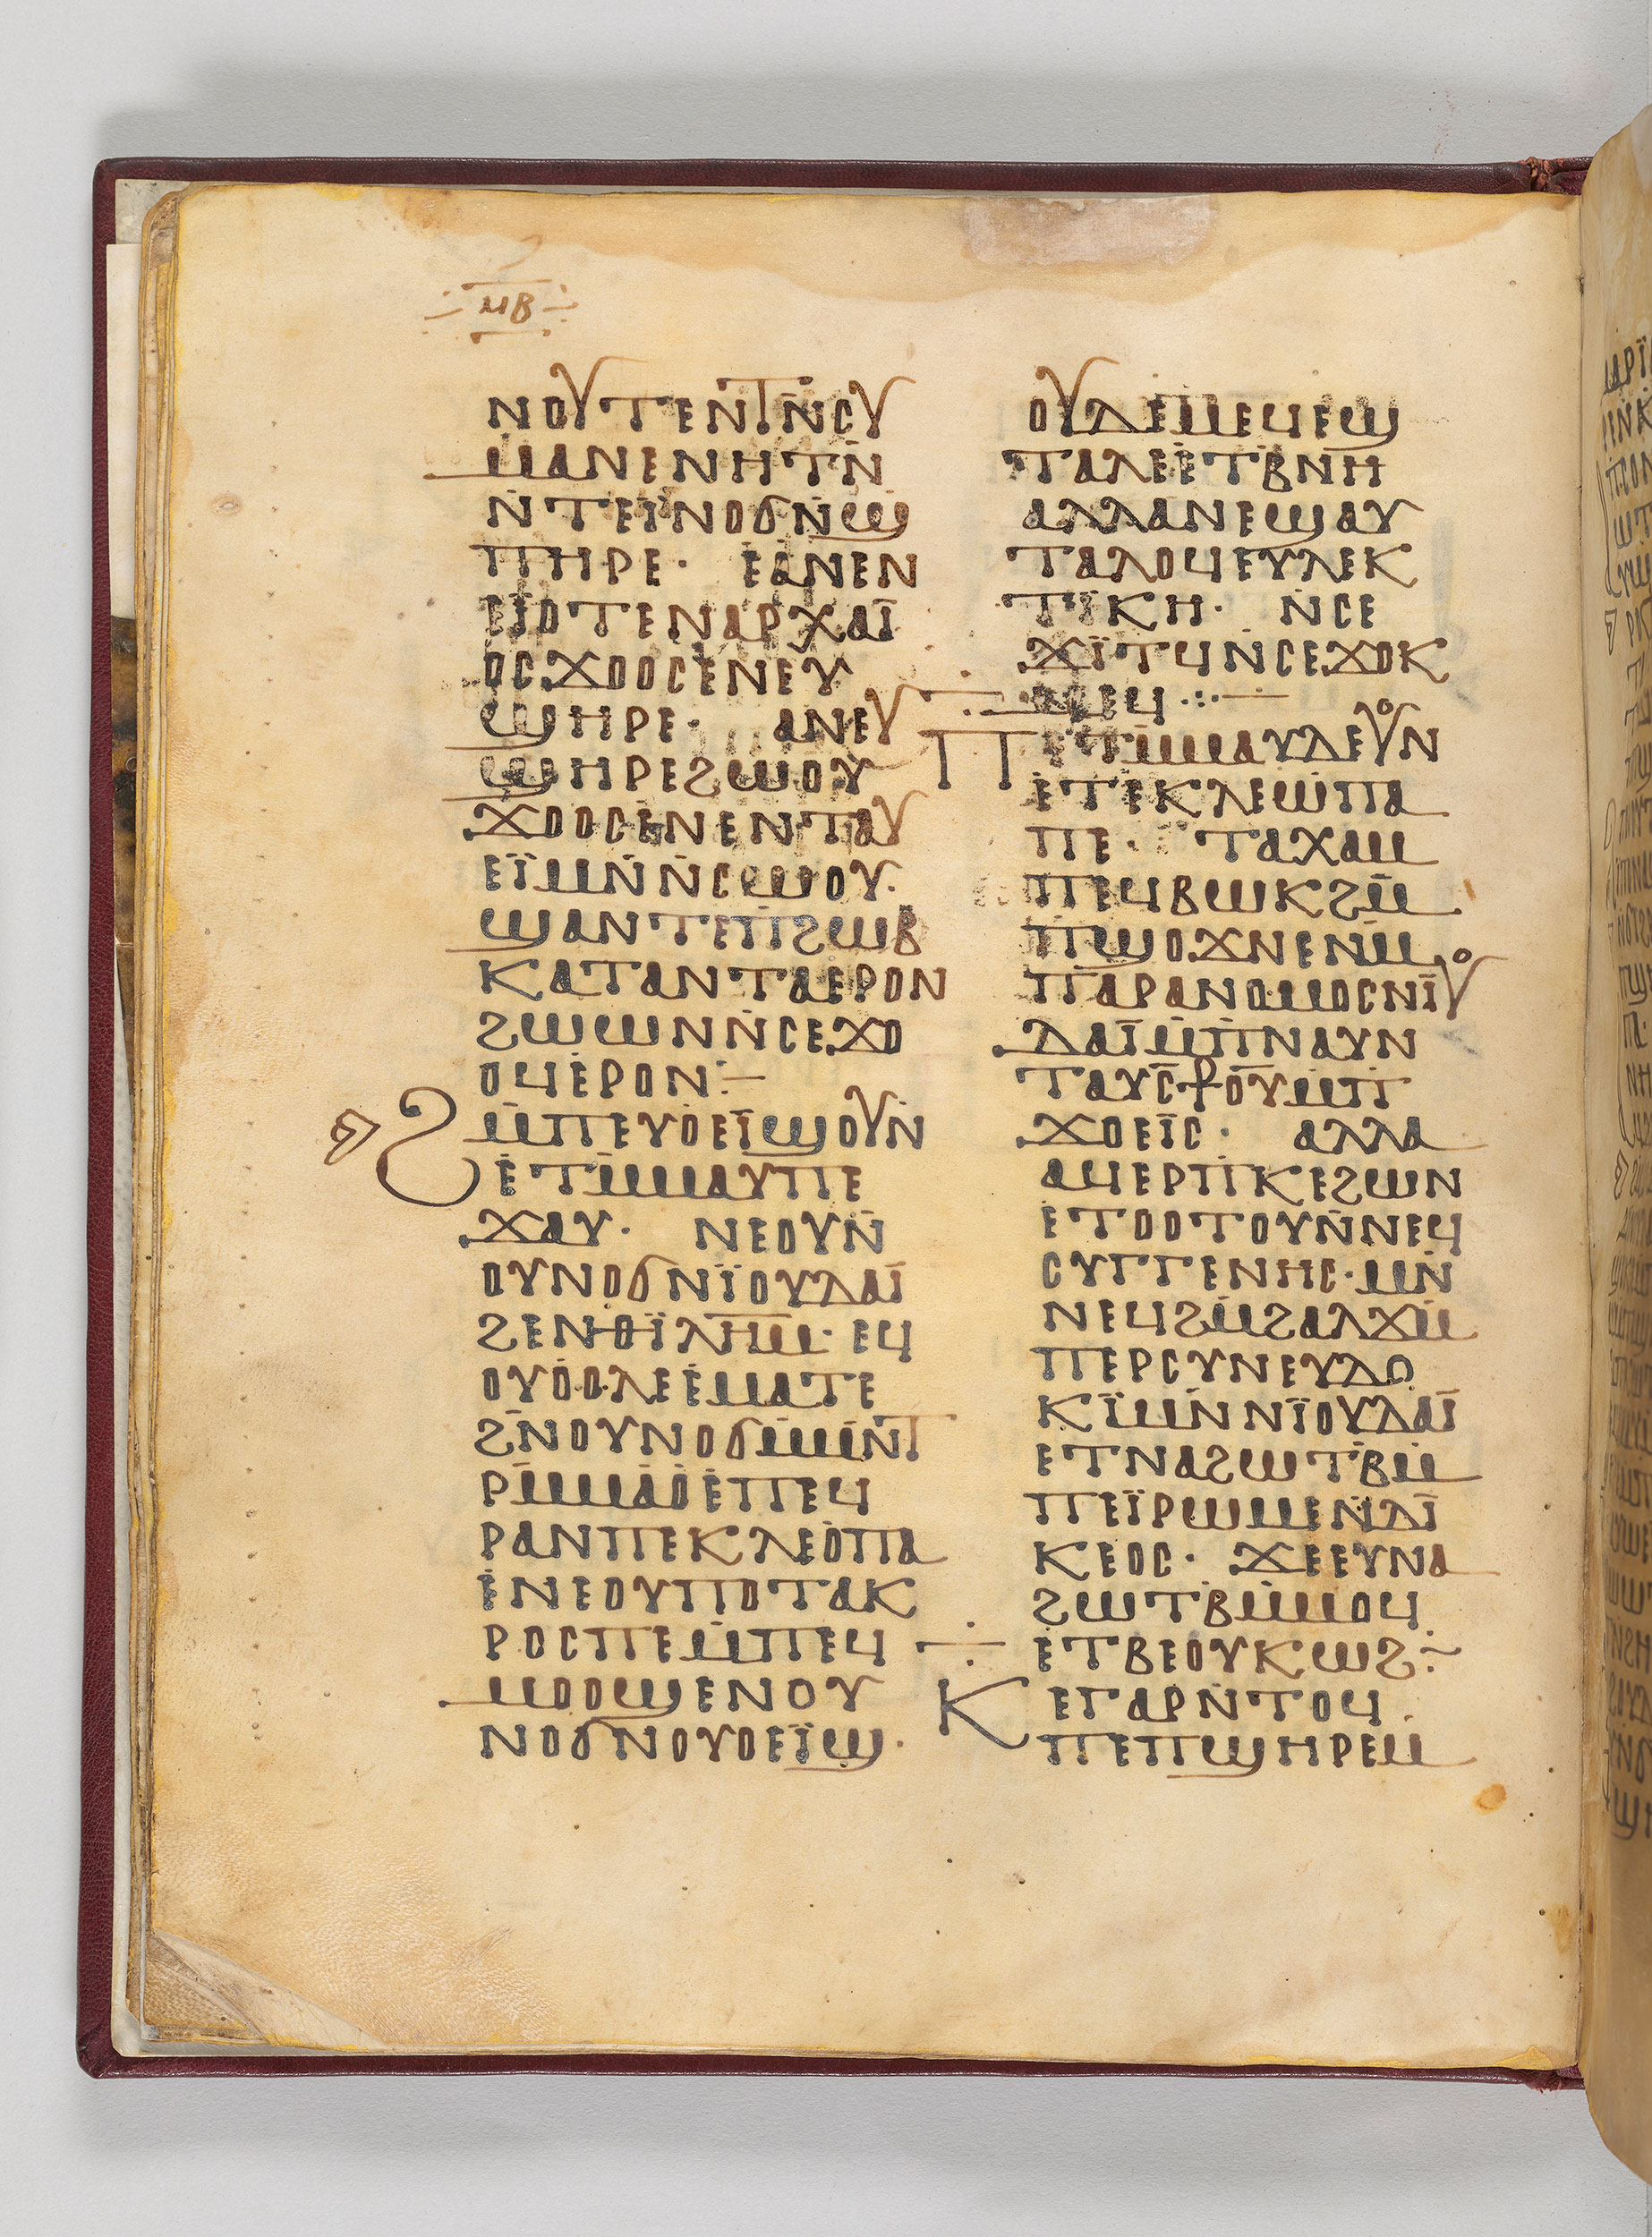 ⲙⲃ
ⲛⲟⲩⲧⲉⲛⲧⲛ̄ⲥⲩ
ⲙⲁⲛⲉⲛⲏⲧⲛ̄
ⲛ̄ⲧⲉⲓ̈ⲛⲟϭⲛ̄ϣ
ⲡⲏⲣⲉ· ⲉⲁⲛⲉⲛ
ⲉⲓⲟⲧⲉⲛⲁⲣⲭⲁⲓ̈
ⲟⲥϫⲟⲟⲥⲉⲛⲉⲩ
ϣⲏⲣⲉ· ⲁⲛⲉⲩ
ϣⲏⲣⲉϩⲱⲟⲩ
ϫⲟⲟⲥⲉⲛⲉⲛⲧⲁⲩ
ⲉⲓ̈ⲙⲛ̄ⲛ̄ⲥⲱⲟⲩ·
ϣⲁⲛⲧⲉⲡϩⲱⲃ
ⲕⲁⲧⲁⲛⲧⲁⲉⲣⲟⲛ
ϩⲱⲱⲛⲛ̄ⲥⲉϫⲟ
ⲟϥⲉⲣⲟⲛ:—
ϩⲙ̄ⲡⲉⲩⲟⲉⲓ̈ϣⲟⲩⲛ̄
ⲉⲧⲙ̄ⲙⲁⲩⲡⲉ
ϫⲁⲩ· ⲛⲉⲟⲩⲛ̄
ⲟⲩⲛⲟϭⲛ̄ⲓ̈ⲟⲩⲇⲁⲓ̈
ϩⲉⲛⲑⲓ̈ⲗⲏⲙ̄· ⲉϥ
ⲟⲩⲟⲟⲗⲉⲉⲙⲁⲧⲉ
ϩⲛ̄ⲟⲩⲛⲟϭⲙ̄ⲙⲛ̄ⲧ
ⲣⲙ̄ⲙⲁⲟⲉⲡⲉϥ
ⲣⲁⲛⲡⲉⲕⲗⲉⲟⲡⲁ
ⲉⲛⲉⲟⲩⲡⲟⲧⲁⲕ
ⲣⲟⲥⲡⲉⲙ̄ⲡⲉϥ
ⲙⲟⲟϣⲉⲛⲟⲩ
ⲛⲟϭⲛⲟⲩⲟⲉⲓ̈ϣ·
ⲟⲩⲇⲉⲙⲉϥⲉϣ
ⲧⲁⲗⲉⲉⲧⲃⲛⲏ
ⲁⲗⲗⲁⲛⲉϣⲁⲩ
ⲧⲁⲗⲟϥⲉⲩⲗⲉⲕ
ⲧⲓ̈ⲕⲏ· ⲛ̄ⲥⲉ
ϫⲓ̈ⲧϥⲛ̄ⲥⲉϫⲟⲕ
ⲙⲉϥ
ⲡⲉⲧⲙ̄ⲙⲁⲩⲇⲉⲟⲩⲛ
ⲉⲧⲉⲕⲗⲉⲱⲡⲁ
ⲡⲉ· ⲧⲁⲭⲁⲙ
ⲡⲉϥⲃⲱⲕϩⲙ̄
ⲡϣⲟϫⲛⲉⲛⲙ̄
ⲡⲁⲣⲁⲛⲟⲙⲟⲥⲛⲓ̈ⲟⲩ
ⲇⲁⲓ̈ⲙ̄ⲡⲛⲁⲩⲛ
ⲧⲁⲩⲥⳁⲟⲩⲙ̄ⲡ
ϫⲟⲉⲓ̈ⲥ· ⲁⲗⲗⲁ
ⲁϥⲉⲣⲡⲕⲉϩⲱⲛ
ⲉⲧⲟⲟⲧⲟⲩⲛ̄ⲛⲉϥ
ⲥⲩⲅⲅⲉⲛⲏⲥ·ⲙⲛ̄
ⲛⲉϥϩⲙ̄ϩⲁⲗϫⲙ̄
ⲡⲉⲣⲥⲩⲛⲉⲩⲇⲟ
ⲕⲓ̈ⲙⲛ̄ⲛⲓ̈ⲟⲩⲇⲁⲓ̈
ⲉⲧⲛⲁϩⲱⲧⲃⲙ̄
ⲡⲉⲓ̈ⲣⲱⲙⲉⲛⲇⲓ̈
ⲕⲉⲟⲥ· ϫⲉⲉⲩⲛⲁ
ϩⲱⲧⲃⲙ̄ⲙⲟϥ
ⲉⲧⲃⲉⲟⲩⲕⲱϩ:~
ⲕⲉⲅⲁⲣⲛ̄ⲧⲟϥ
ⲡⲉⲡϣⲏⲣⲉⲙ